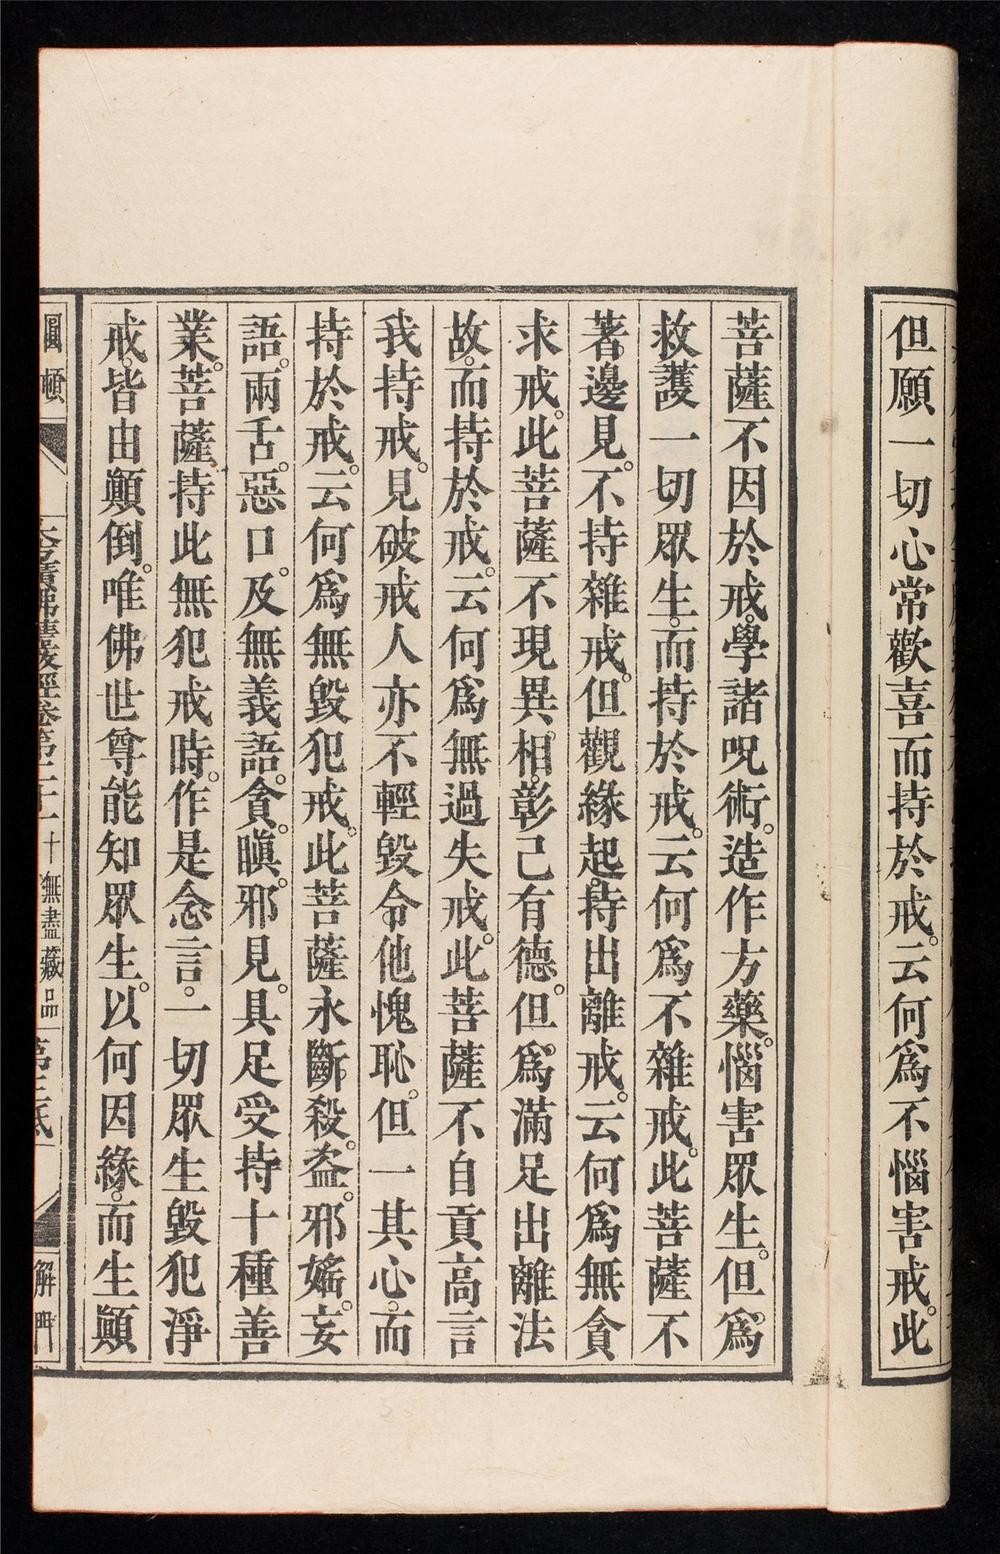 但願一切心常歡喜而持於戒。云何爲不惱害戒。此
菩薩不因於戒。學諸呪術。造作方藥。惱害眾生。但爲
救護一切眾生。而持於戒。云何爲不雜戒。此菩薩不
著邊見。不持雜戒。但觀緣起。持出離戒。云何爲無貪
求戒。此菩薩不現異相。彰己有德。但爲滿足出離法
故。而持於戒。云何爲無過失戒。此菩薩不自貢高。言
我持戒。見破戒人亦不輕毀。令他愧恥。但一其心。而
持於戒。云何爲無毀犯戒。此菩薩永斷殺。盜。邪婬。妄
語。兩舌。惡口。及無義語。貪。瞋。邪見。具足受持十種善
業。菩薩持此無犯戒時。作是念言。一切眾生毀犯淨
戒。皆由顛倒。唯佛世尊能知眾生。以何因緣。而生顛
圓頓
大方廣佛華嚴經卷第二十一
十無盡藏品
第三紙
解門